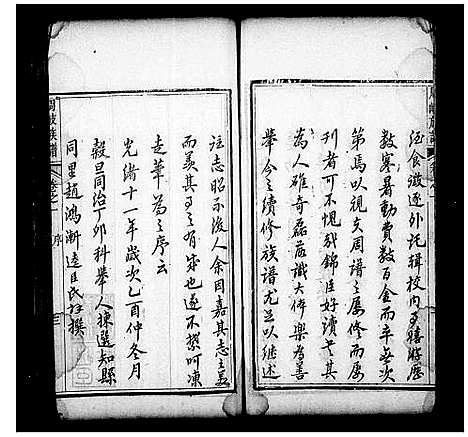 酒食激逐外託輯校內事膳將歷
數寒暑動費數百金而卒無次
第焉以視支周譜之屢修而屢
刊者可不愧哉錦臣好讀書其
為人雄奇磊落識大体樂為善
舉今之續修族譜尤足以繼述
註志昭示後人余因嘉其志之美
而羨其事之有成也遂不禁呵凍
走筆為之序云
光緒十一年歲次乙酉仲冬月
穀旦同治丁卯科舉人揀選知縣
同里趙鴻漸逵臣氏拜撰
族譜
卷之一
序
三